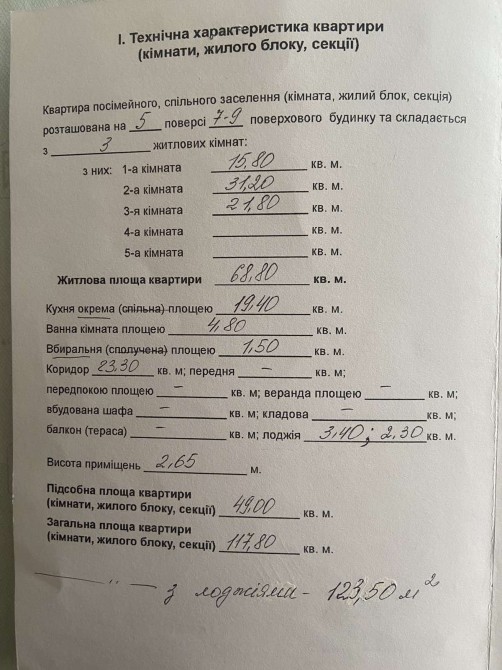 І. Технічна характеристика квартири
(кімнати, жилого блоку, секції)
Квартира посімейного, спільного заселення (кімната, жилий блок, секція)
розташована на 5 поверсі 7-9 поверхового будинку та складається
з 3 житлових кімнат:
з них: 1-а кімната 15,80 кв. м.
2-а кімната 31,20 кв. м.
3-я кімната 21,80 кв. м.
4-а кімната кв. м.
5-а кімната кв. м.
Житлова площа квартири 68,80 кв. м.
Кухня окрема (спільна) площею 19,40 кв. м.
Ванна кімната площею 4,80 кв. м.
Вбиральня (сполучена) площею 1,50 кв. м.
Коридор 23,30 кв. м; передня – кв. м;
передпокою площею – кв. м; веранда площею – кв. м;
вбудована шафа – кв. м; кладова – кв. м;
балкон (тераса) – кв. м; лоджія 3,40; 2,30 кв. м.
Висота приміщень 2,65 м.
Підсобна площа квартири
(кімнати, жилого блоку, секції) 49,00 кв. м.
Загальна площа квартири
(кімнати, жилого блоку, секції) 117,80 кв. м.
— " — з лоджіями - 123,50 м²